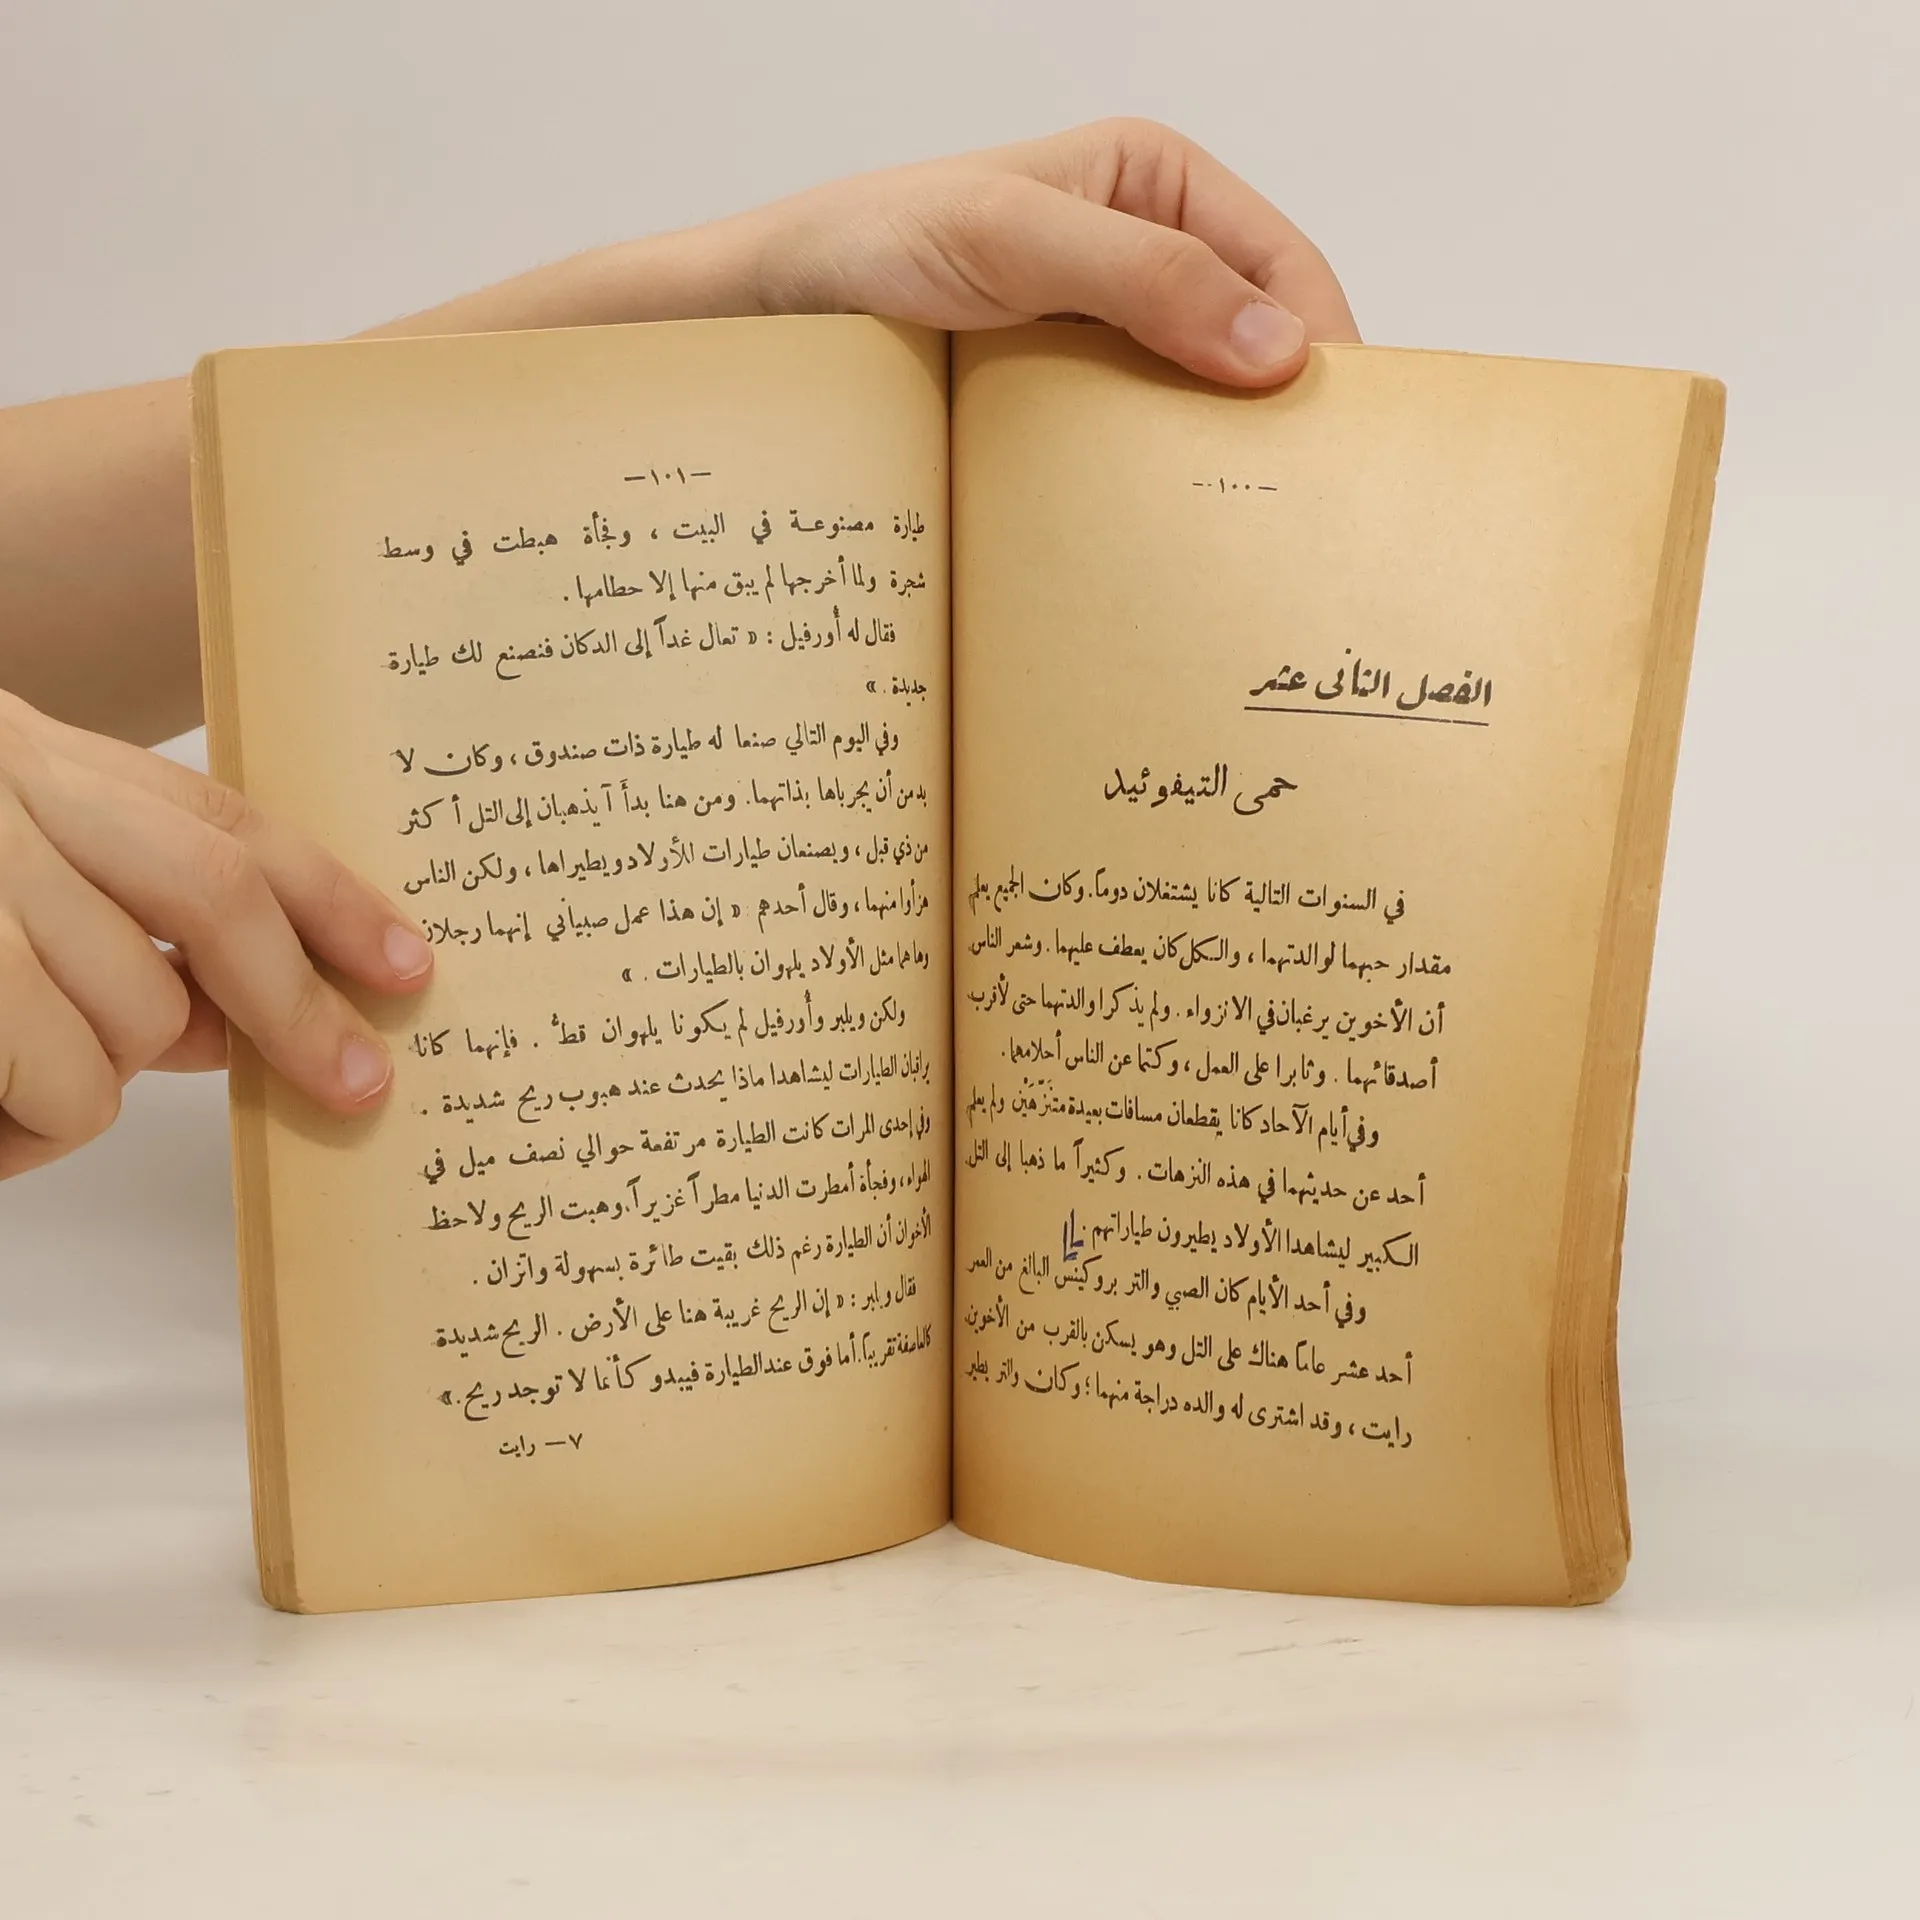 — ١٠٠ —
الفصل الثاني عشر
حمى التيفوئيد
في السنوات التالية كانا يشتغلان دوماً. وكان الجميع يعلم
مقدار حبهما لوالدتهما ، والكل كان يعطف عليهما . وشعر الناس
أن الأخوين يرغبان في الانزواء . ولم يذكرا والدتهما حتى لأقرب
أصدقائهما . وثابرا على العمل ، وكتما عن الناس أحلامهما .
وفي أيام الآحاد كانا يقطعان مسافات بعيدة متنزّهَيْن ولم يعلم
أحد عن حديثهما في هذه النزهات . وكثيراً ما ذهبا إلى التل
الكبير ليشاهدا الأولاد يطيرون طياراتهم .
وفي أحد الأيام كان الصبي والتر بروكينس البالغ من العمر
أحد عشر عاماً هناك على التل وهو يسكن بالقرب من الأخوين
رايت ، وقد اشترى له والده دراجة منهما ؛ وكان والتر يطير
— ١٠١ —
طيارة مصنوعة في البيت ، وفجأة هبطت في وسط
شجرة ولما أخرجها لم يبق منها إلا حطامها .
فقال له أُورفيل : « تعال غداً إلى الدكان فنصنع لك طيارة
جديدة . »
وفي اليوم التالي صنعا له طيارة ذات صندوق ، وكان لا
بد من أن يجرباها بذاتهما . ومن هنا بدأَ آ يذهبان إلى التل أكثر
من ذي قبل ، ويصنعان طيارات للأولاد ويطيراها ، ولكن الناس
هزأوا منهما ، وقال أحدهم « إن هذا عمل صبياني إنهما رجلان
وها هما مثل الأولاد يلهوان بالطيارات . »
ولكن ويلبر وأُورفيل لم يكونا يلهوان قطّ . فإنهما كانا
يراقبان الطيارات ليشاهدا ماذا يحدث عند هبوب ريح شديدة .
وفي إحدى المرات كانت الطيارة مرتفعة حوالي نصف ميل في
الهواء ، وفجأة أمطرت الدنيا مطراً غزيراً، وهبت الريح ولاحظ
الأخوان أن الطيارة رغم ذلك بقيت طائرة بسهولة واتزان .
فقال ويلبر : « إن الريح غريبة هنا على الأرض . الريح شديدة
كالعاصفة تقريباً. أما فوق عند الطيارة فيبدو كأنما لا توجد ريح . »
٧ — رايت